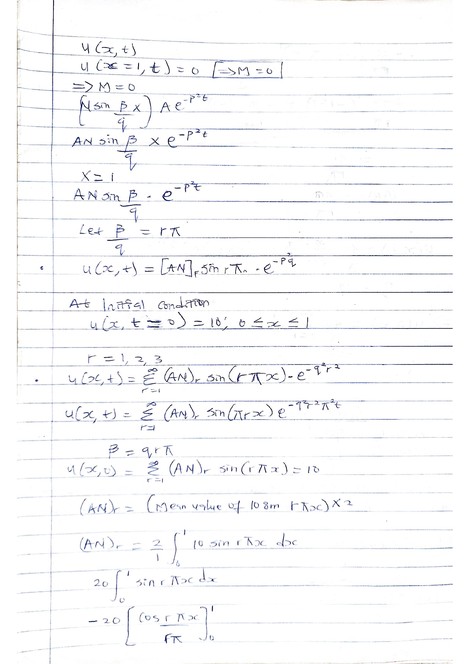 u(x,t)
u(x=1,t) = 0 [=> M = 0]
=> M = 0
(N sin β/q x) A e^-p²t
AN sin β/q x e^-p²t
x = 1
AN sin β/q · e^-p²t
Let β/q = rπ
• u(x,t) = [AN]r sin rπ · e^-p²q
At Initial condition
u(x, t=0) = 10; 0 ≤ x ≤ 1
r = 1, 2, 3
• u(x,t) = ∞Σr=1 (AN)r sin(rπx) - e^-q²r²
u(x,t) = ∞Σr=1 (AN)r sin(πrx) e^-q²r²π²t
β = qrπ
u(x,0) = ∞Σr=1 (AN)r sin(rπx) = 10
(AN)r = (Mean value of 10 sin rπx) × 2
(AN)r = 2/1 ∫₀¹ 10 sin rπx dx
20 ∫₀¹ sin rπx dx
-20 [cos rπx / rπ]₀¹